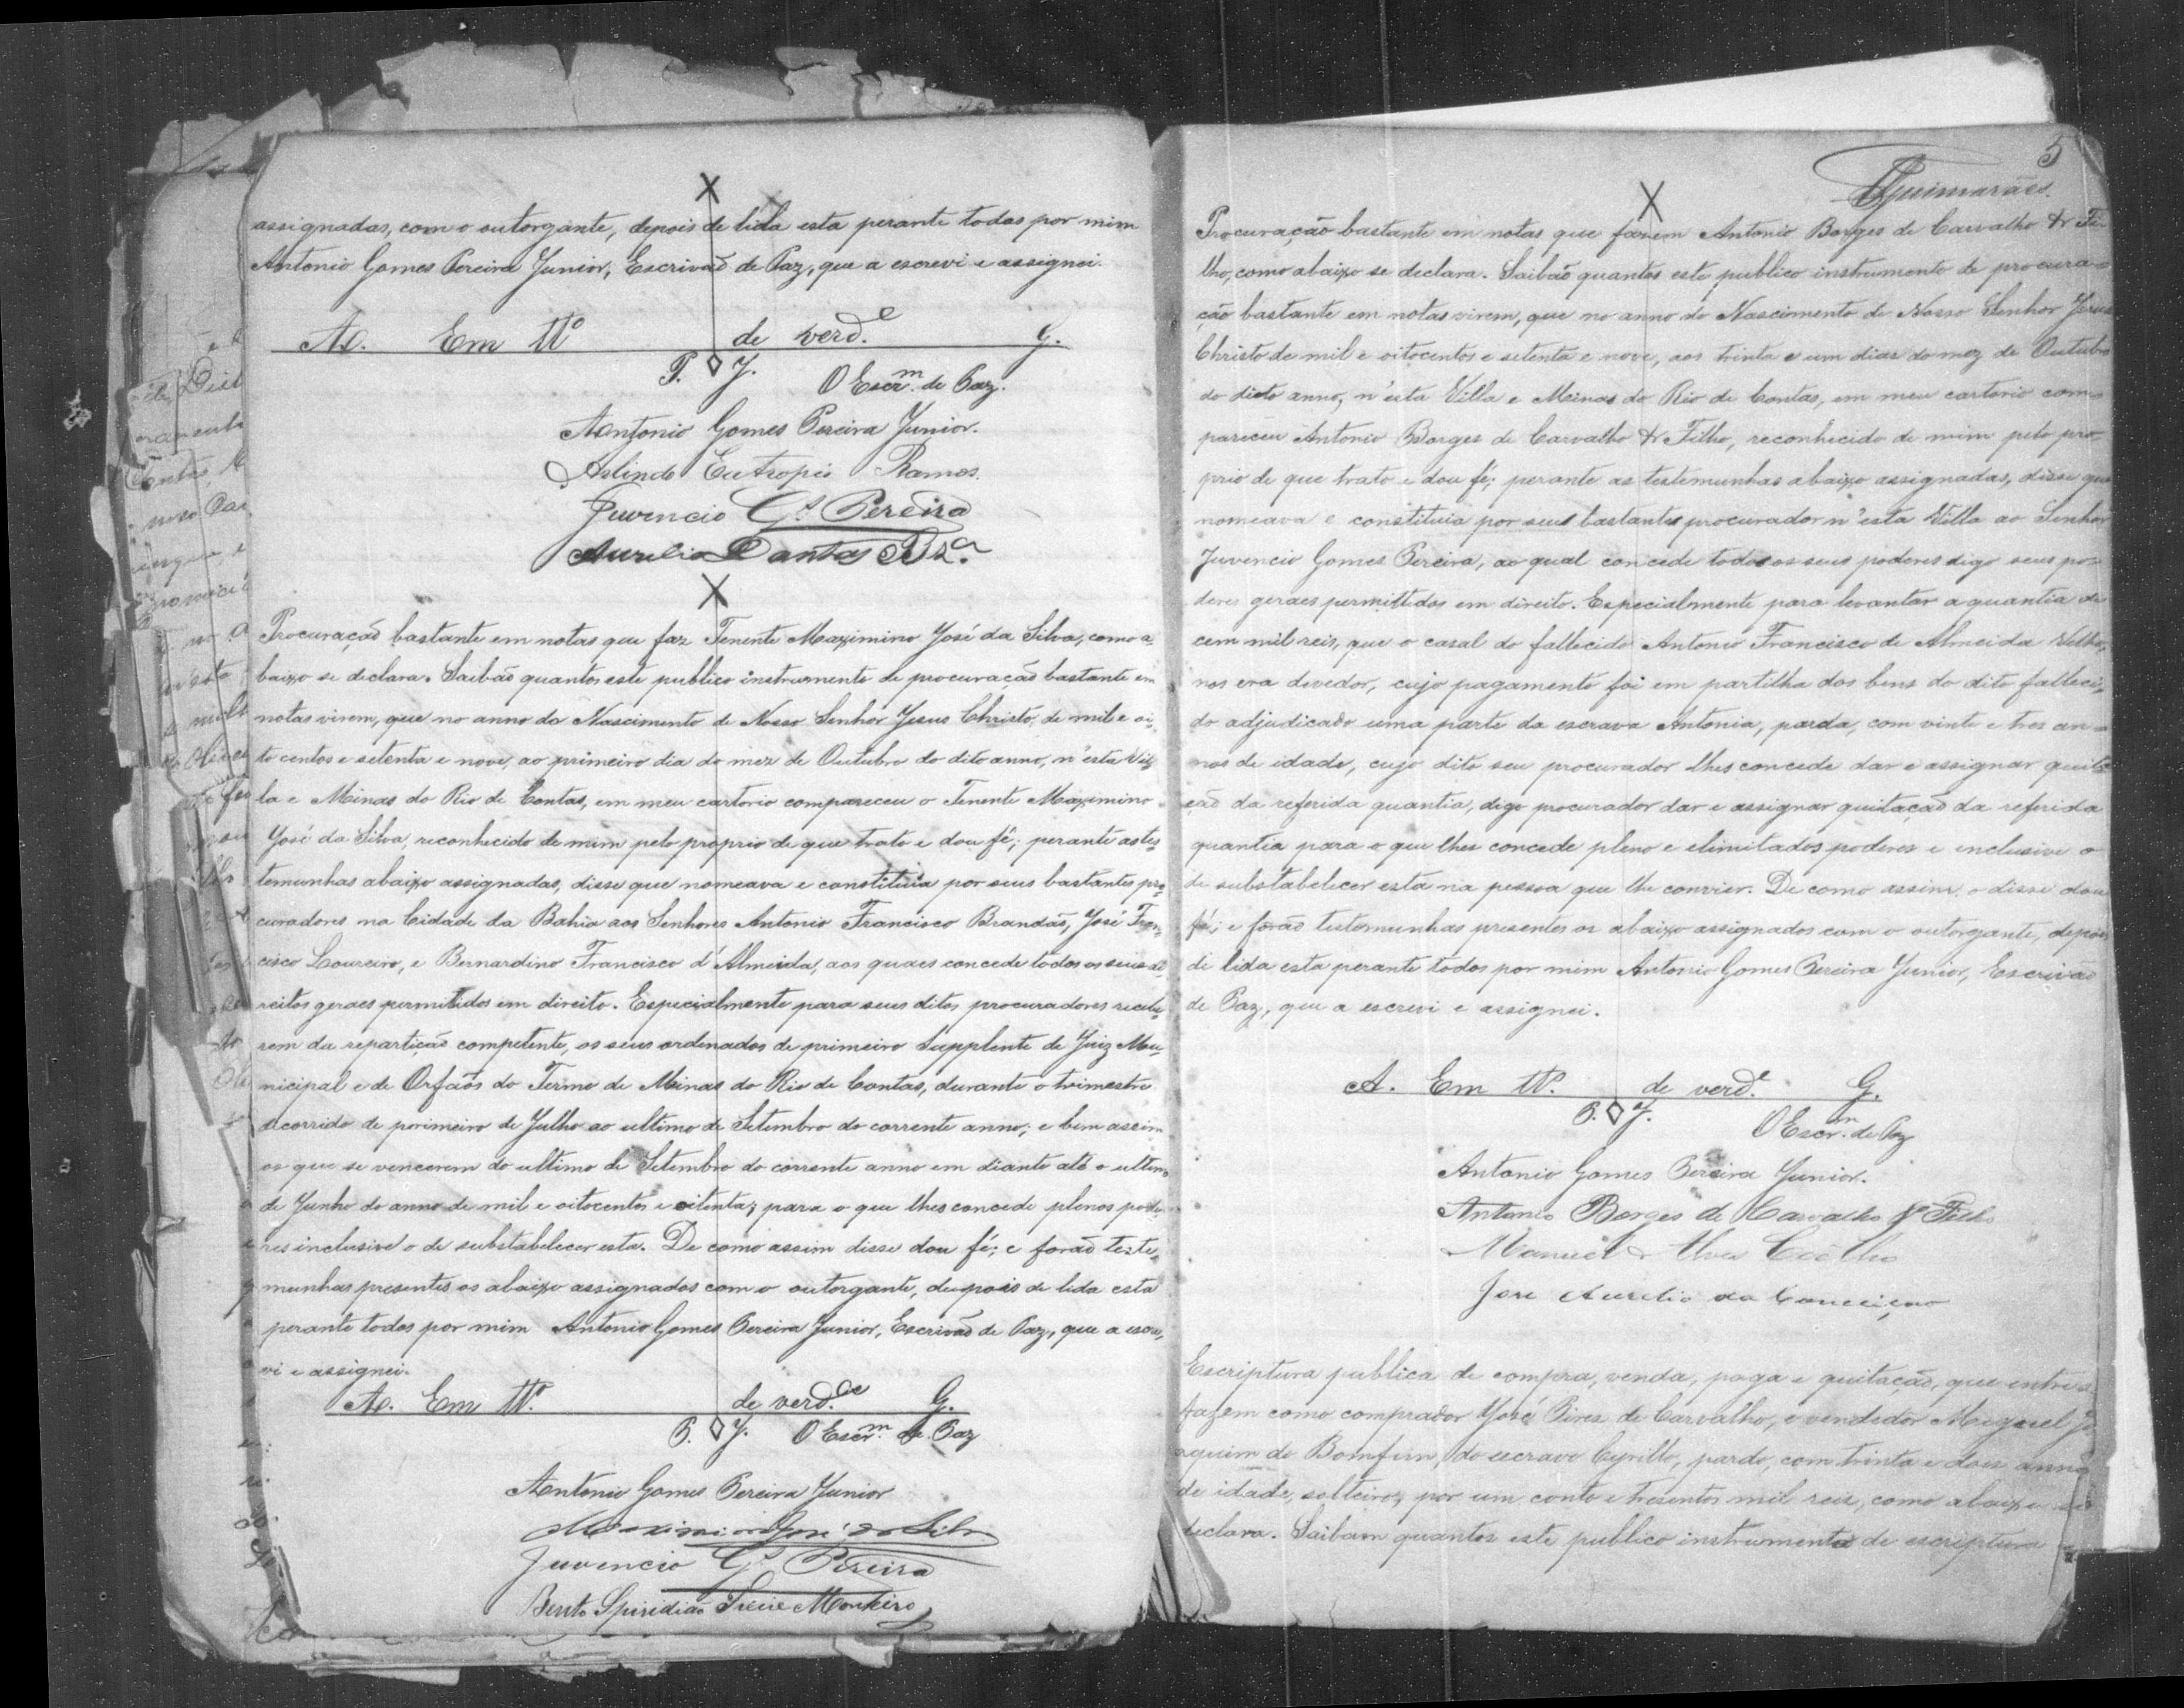 assignadas, com o outorgante, depois de lida esta perante todas por mim
Antonio Gomes Pereira Junior, Escrivaõ de Paz, que a escrevi e assignei.
A. Em tt.º de verd.e G.
P. J. O Escr.m de Paz.
Antonio Gomes Pereira Junior.
Arlindo Eutropio Ramos.
Juvencio G.s Pereira
Aurelio Dantas
Procuração bastante em notas que faz Tenente Maximino José da Silva, como a-
baixo se declara. Saibaõ quantos este publico instrumento de procuraçaõ bastante em
notas virem, que no anno do Nascimento de Nosso Senhor Jesus Christo, de mil e oi-
to centos e setenta e nove, ao primeiro dia do mez de Outubro do dito anno, n'esta Vil-
la e Minas do Rio de Contas, em meu cartorio compareceu o Tenente Maximino
José da Silva, reconhecido de mim pelo proprio de que trato e dou fé; perante as tes-
temunhas abaixo assignadas, disse que nomeava e constituia por seus bastantes pro-
curadores na Cidade da Bahia aos Senhores Antonio Francisco Brandaõ, José Fran-
cisco Loureiro, e Bernardino Francisco d'Almeida, aos quaes concede todos os seus di-
reitos geraes permitidos em direito. Especialmente para seus ditos procuradores recebe-
rem da repartiçaõ competente, os seus ordenados de primeiro Supplente de Juiz Mu-
nicipal e de Orfaõs do Termo de Minas do Rio de Contas, durante o trimestre
decorrido de porimeiro de Julho ao ultimo de Setembro do corrente anno; e bem assim
os que se vencerem do ultimo de Setembro do corrente anno em diante até o ultimo
de Junho do anno de mil e oitocentos e oitenta; para o que lhes concede plenos pode-
res inclusive o de substabelecer esta. De como assim disse dou fé; e foraõ teste-
munhas presentes os abaixo assignados com o outorgante, depois de lida esta
perante todos por mim Antonio Gomes Pereira Junior, Escrivaõ de Paz, que a escre-
vi e assignei.
A. Em tt.º de verd.e G.
P. J. O Escr.m de Paz
Antonio Gomes Pereira Junior
Maximino José da Silva
Juvencio G.s Pereira
Bento Spiridiaõ Freire Monteiro
5
Guimarães.
Procuração bastante em notas que fazem Antonio Borges de Carvalho & Fi-
lho, como abaixo se declara. Saibaõ quantos este publico instrumento de procura-
ção bastante em notas virem, que no anno do Nascimento de Nosso Senhor Jesus
Christo de mil e oitocentos e setenta e nove, aos trinta e um dias do mez de Outubro
do dicto anno, n'esta Villa e Minas do Rio de Contas, em meu cartorio com-
pareceu Antonio Borges de Carvalho & Filho, reconhecido de mim pelo pro-
prio de que trato e dou fé; perante as testemunhas abaixo assignadas, disse que
nomeava e constituia por seus bastantes procurador n'esta Villa ao Senhor
Juvencio Gomes Pereira, ao qual concede todos os seus poderes digo seus po-
deres geraes permittidos em direito. Especialmente para levantar a quantia de
cem mil reis, que o casal do fallecido Antonio Francisco de Almeida Velho,
nos era devedor, cujo pagamento foi em partilha dos bens do dito falleci-
do adjudicado uma parte da escrava Antonia, parda, com vinte e tres an-
nos de idade, cujo dito seu procurador lhes concede dar e assignar quita-
çaõ da referida quantia, digo procurador dar e assignar quitaçaõ da referida
quantia para o que lhes concede pleno e elimitados poderes e inclusive o
de substabelecer esta na pessoa que lhe convier. De como assim o disse dou
fé; e foraõ testemunhas presentes os abaixo assignados com o outorgante, depois
de lida esta perante todos por mim Antonio Gomes Pereira Junior, Escrivaõ
de Paz, que a escrevi e assignei.
A. Em tt.º de verd.e G.
P. J. O Escr.m de Paz
Antonio Gomes Pereira Junior.
Antonio Borges de Carvalho & Filho
Manuel Alves Coêlho
Jose Aurelio da Conceiçao
Escriptura publica de compra, venda, paga e quitação, que entre si
fazem como comprador José Pires de Carvalho, e vendedor Miguel Jo-
aquim do Bomfim, do escravo Cyrillo, pardo, com trinta e dous annos
de idade, solteiro, por um conto e tresentos mil reis, como abaixo se
declara. Saibam quantos este publico instrumento de escriptura